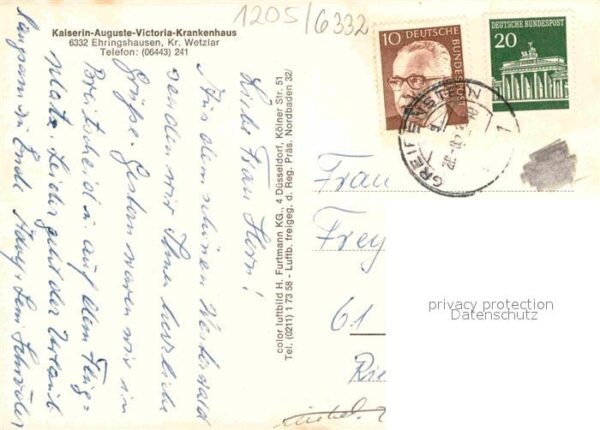 1205/6332
Kaiserin-Auguste-Victoria-Krankenhaus
6332 Ehringshausen, Kr. Wetzlar
Telefon: (06443) 241
Liebe Frau Horn!
Aus dem schönen Westerwald
senden wir Ihnen herzliche
Grüße. Gestern waren wir in
Breitscheid auf dem Flug=
platz. Leider geht der Urlaub
langsam zu Ende. Hans + Leni Schröder
color luftbild H. Furtmann KG., 4 Düsseldorf, Kölner Str. 51
Tel. (0211) 1 73 58 - Luftb. freigeg. d. Reg. Präs. Nordbaden 32/
10 DEUTSCHE BUNDESPOST
DEUTSCHE BUNDESPOST
20
GREIFENSTEIN
1
Frau
Frey
61
Rie
privacy protection
Datenschutz